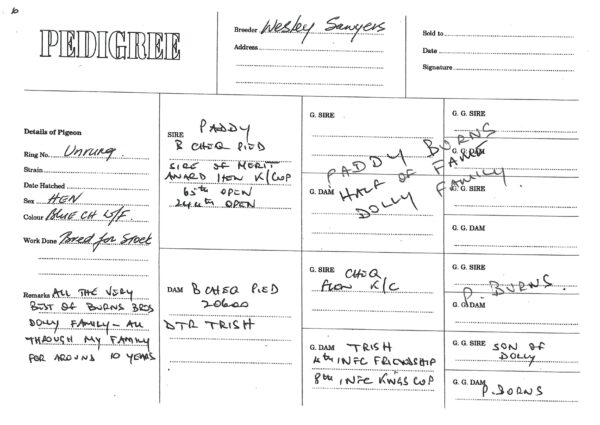 PEDIGREE
Breeder Wesley Sawyers
Address
Sold to
Date
Signature
Details of Pigeon
Ring No. Unrung.
Strain
Date Hatched
Sex HEN
Colour BLUE CH W/F.
Work Done Bred for Stock
Remarks ALL THE VERY
BEST OF BURNS BROS
DOLLY FAMILY - ALL
THROUGH MY FAMILY
FOR AROUND 10 YEARS
SIRE PADDY
B CHEQ PIED
SIRE OF MERIT
AWARD HEN K/CUP
65th OPEN
244th OPEN
DAM B CHEQ PIED
20600
DTR TRISH
G. SIRE
PADDY BURNS
HALF OF FAME
DOLLY FAMILY.
G. DAM
G. SIRE CHEQ
FLOWN K/C
G. DAM TRISH
4th INFC FRIENDSHIP
8th INFC KINGS CUP
G. G. SIRE
G. G. DAM
G. G. SIRE
G. G. DAM
G. G. SIRE
P. BURNS.
G. G. DAM
G. G. SIRE SON OF
DOLLY
G. G. DAM
P. BURNS